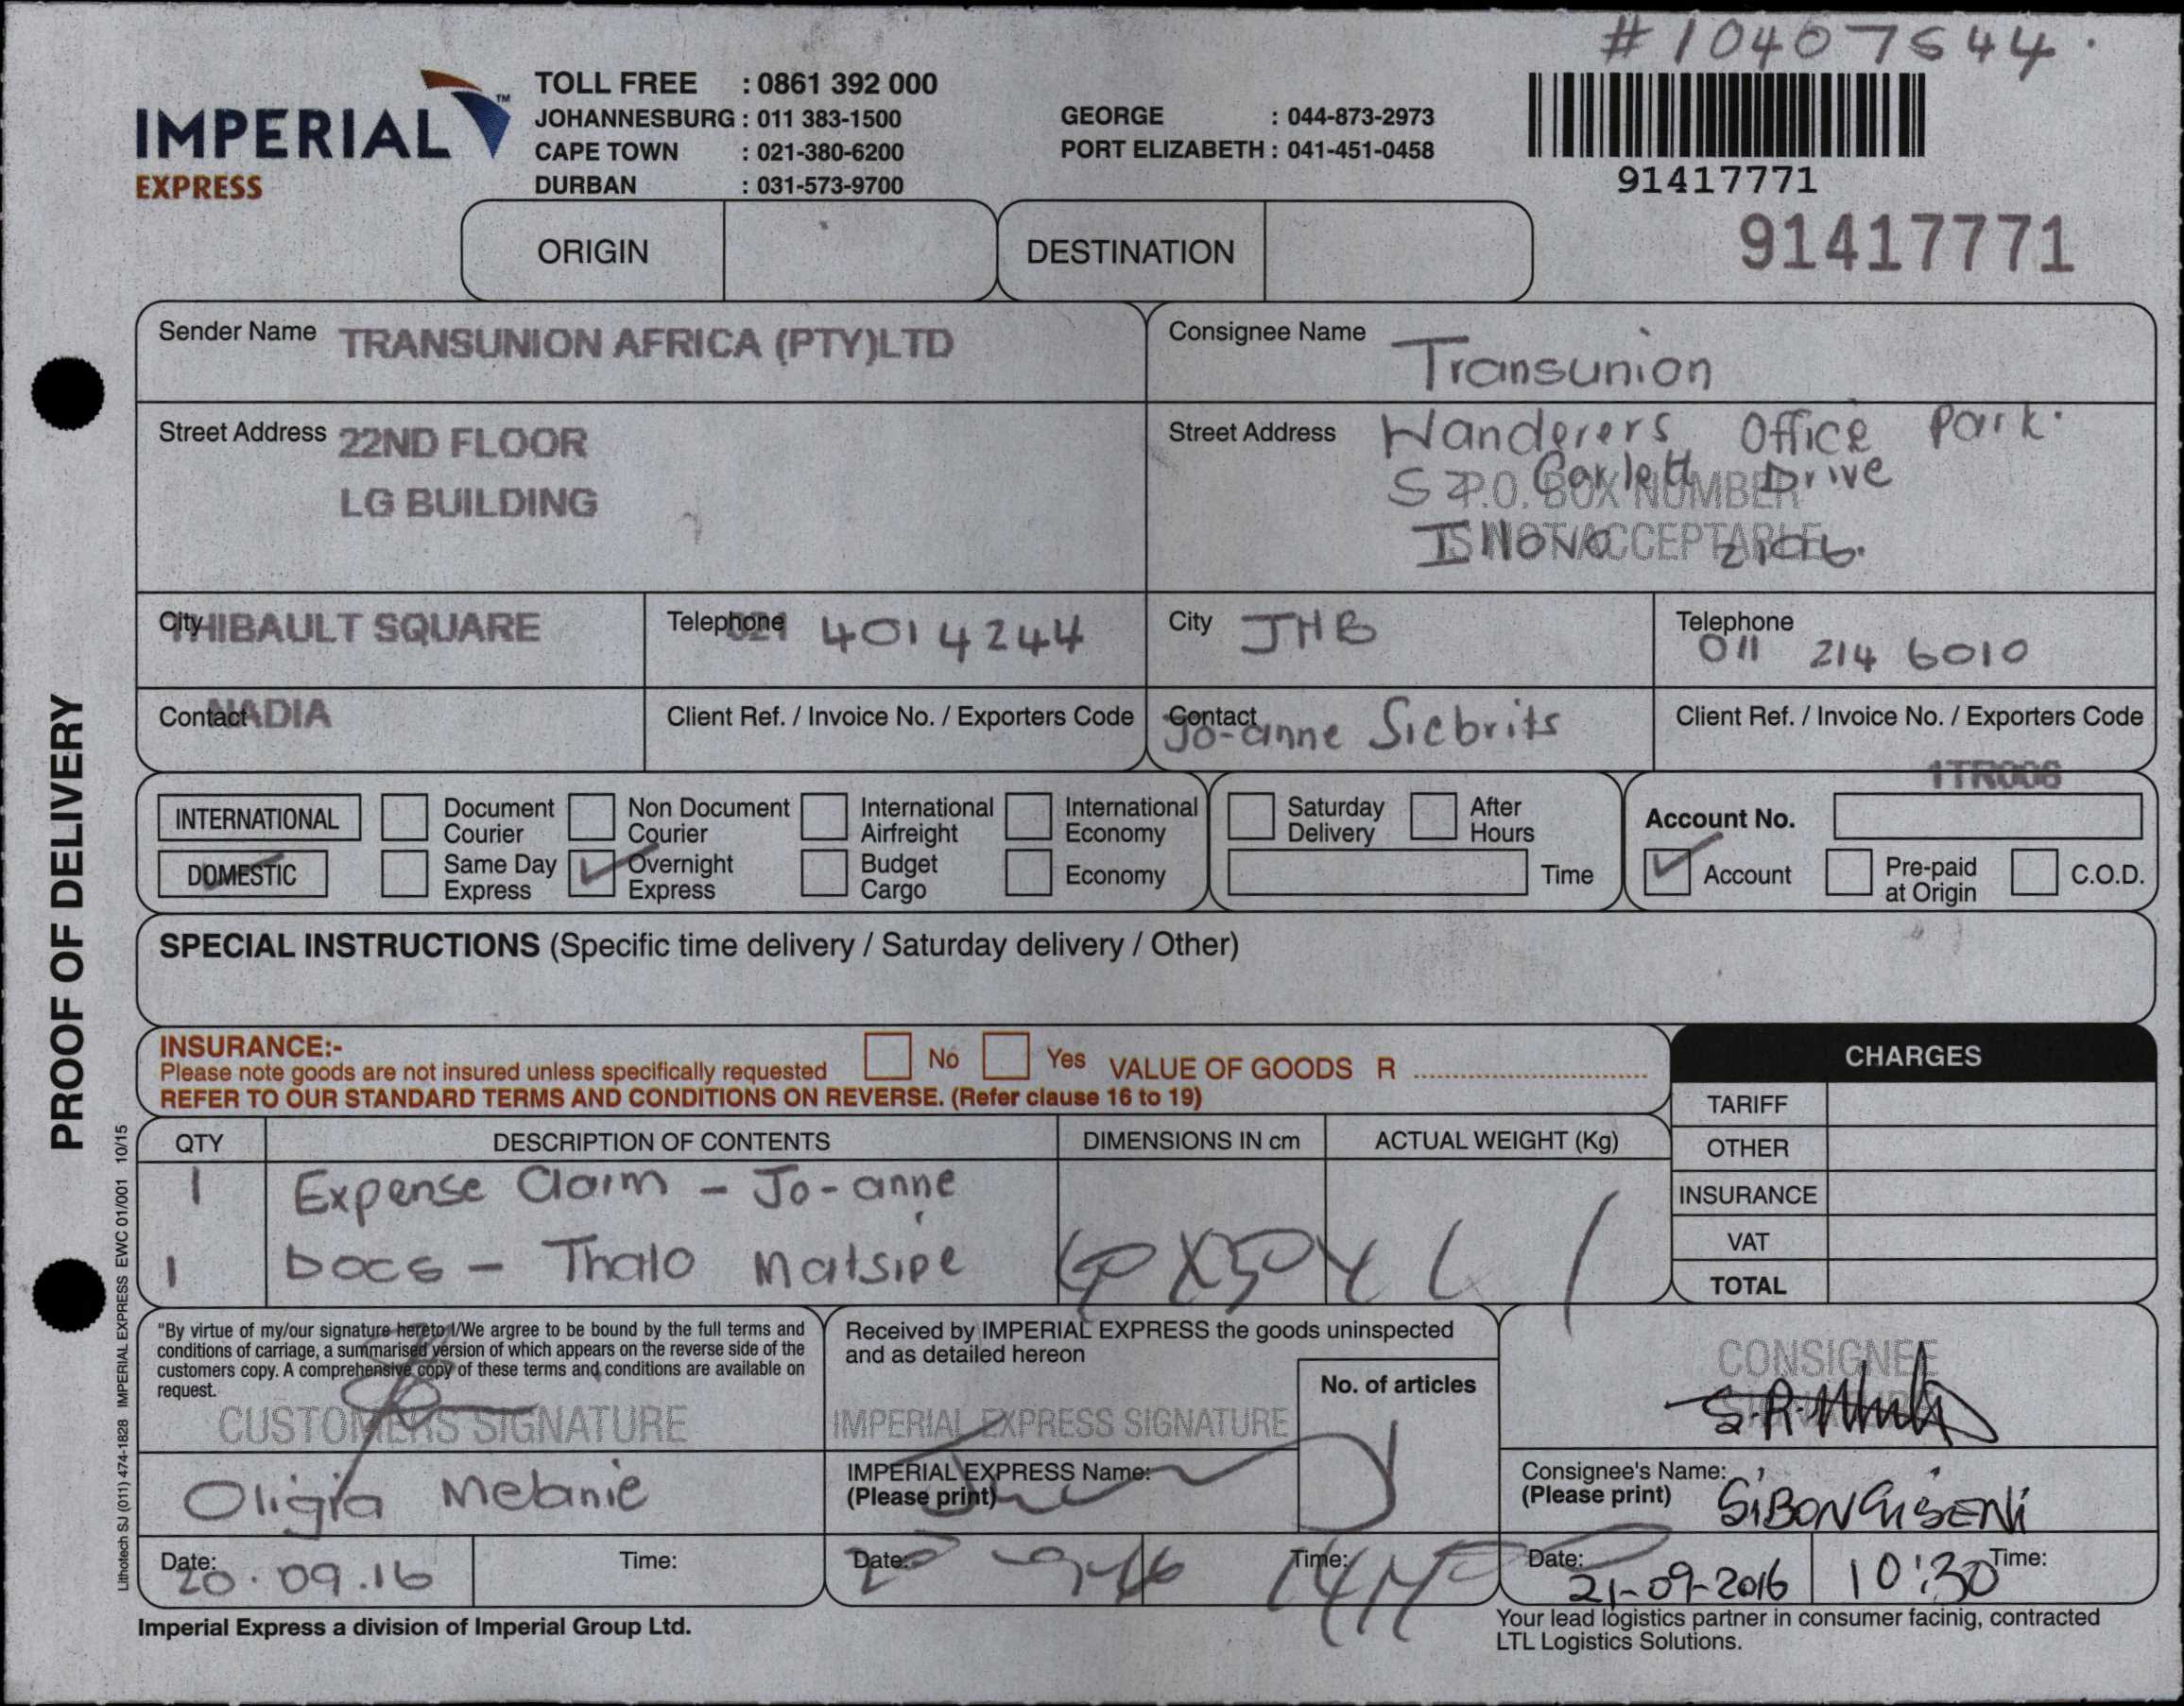 #10407544.
IMPERIAL™
EXPRESS
TOLL FREE : 0861 392 000
JOHANNESBURG : 011 383-1500
CAPE TOWN : 021-380-6200
DURBAN : 031-573-9700
GEORGE : 044-873-2973
PORT ELIZABETH : 041-451-0458
91417771
91417771
ORIGIN
DESTINATION
Sender Name TRANSUNION AFRICA (PTY)LTD
Consignee Name Transunion
Street Address 22ND FLOOR
LG BUILDING
Street Address Wanderers Office Park.
52 Corlett Drive
P.O. BOX NUMBER
Illovo 2196.
IS NOT ACCEPTABLE
City THIBAULT SQUARE
Telephone 021 4014244
City JHB
Telephone
011 214 6010
Contact NADIA
Client Ref. / Invoice No. / Exporters Code
Contact
Jo-anne Siebrits
Client Ref. / Invoice No. / Exporters Code
1TR006
INTERNATIONAL
Document Courier
Non Document Courier
International Airfreight
International Economy
Saturday Delivery
After Hours
Account No.
DOMESTIC
Same Day Express
Overnight Express
Budget Cargo
Economy
Time
Account
Pre-paid at Origin
C.O.D.
SPECIAL INSTRUCTIONS (Specific time delivery / Saturday delivery / Other)
INSURANCE:-
Please note goods are not insured unless specifically requested
No Yes VALUE OF GOODS R
REFER TO OUR STANDARD TERMS AND CONDITIONS ON REVERSE. (Refer clause 16 to 19)
CHARGES
TARIFF
OTHER
INSURANCE
VAT
TOTAL
QTY DESCRIPTION OF CONTENTS DIMENSIONS IN cm ACTUAL WEIGHT (Kg)
1 Expense Claim - Jo-anne
1 Docs - Thalo Matsipe
"By virtue of my/our signature hereto I/We argree to be bound by the full terms and
conditions of carriage, a summarised version of which appears on the reverse side of the
customers copy. A comprehensive copy of these terms and conditions are available on
request.
CUSTOMERS SIGNATURE
Oligia Melanie
Date: 20.09.16
Time:
Received by IMPERIAL EXPRESS the goods uninspected
and as detailed hereon
No. of articles
IMPERIAL EXPRESS SIGNATURE
IMPERIAL EXPRESS Name:
(Please print)
Date:
Time:
CONSIGNEE
SIGNATURE
Consignee's Name:
(Please print) SIBONGISENI
Date: 21-09-2016
10:30 Time:
Imperial Express a division of Imperial Group Ltd.
Your lead logistics partner in consumer facinig, contracted
LTL Logistics Solutions.
PROOF OF DELIVERY
Lithotech SJ (011) 474-1828 IMPERIAL EXPRESS EWC 01/001 10/15